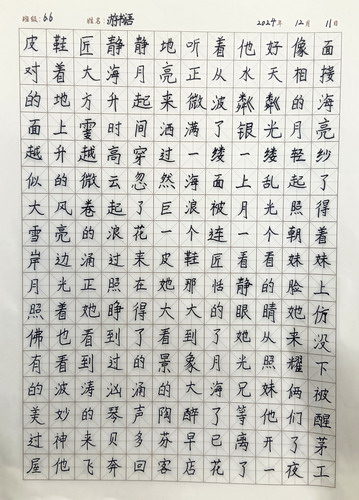 班级:66 姓名:游书语 2024年12月11日
皮鞋匠静静地听着他好像面
对着大海月亮正从水天相接
的地方升起来微波粼粼的海
面上霎时间洒满了银光月亮
越升越高穿过一缕一缕轻纱
似的微云忽然海面上乱起了
大风卷起了巨浪被月光照得
雪亮的浪花一个连一个朝着
岸边涌过来皮鞋匠看看妹妹
月光正照在她那恬静的脸上
照着她睁得大大的眼睛她仿
佛也看到了看到了她从来没
有看到过的景象月光照耀下
的波涛汹涌的大海兄妹俩被
美妙的琴声陶醉了等他们醒
过神来贝多芬早已离开了茅
屋他飞奔回客店花了一夜工